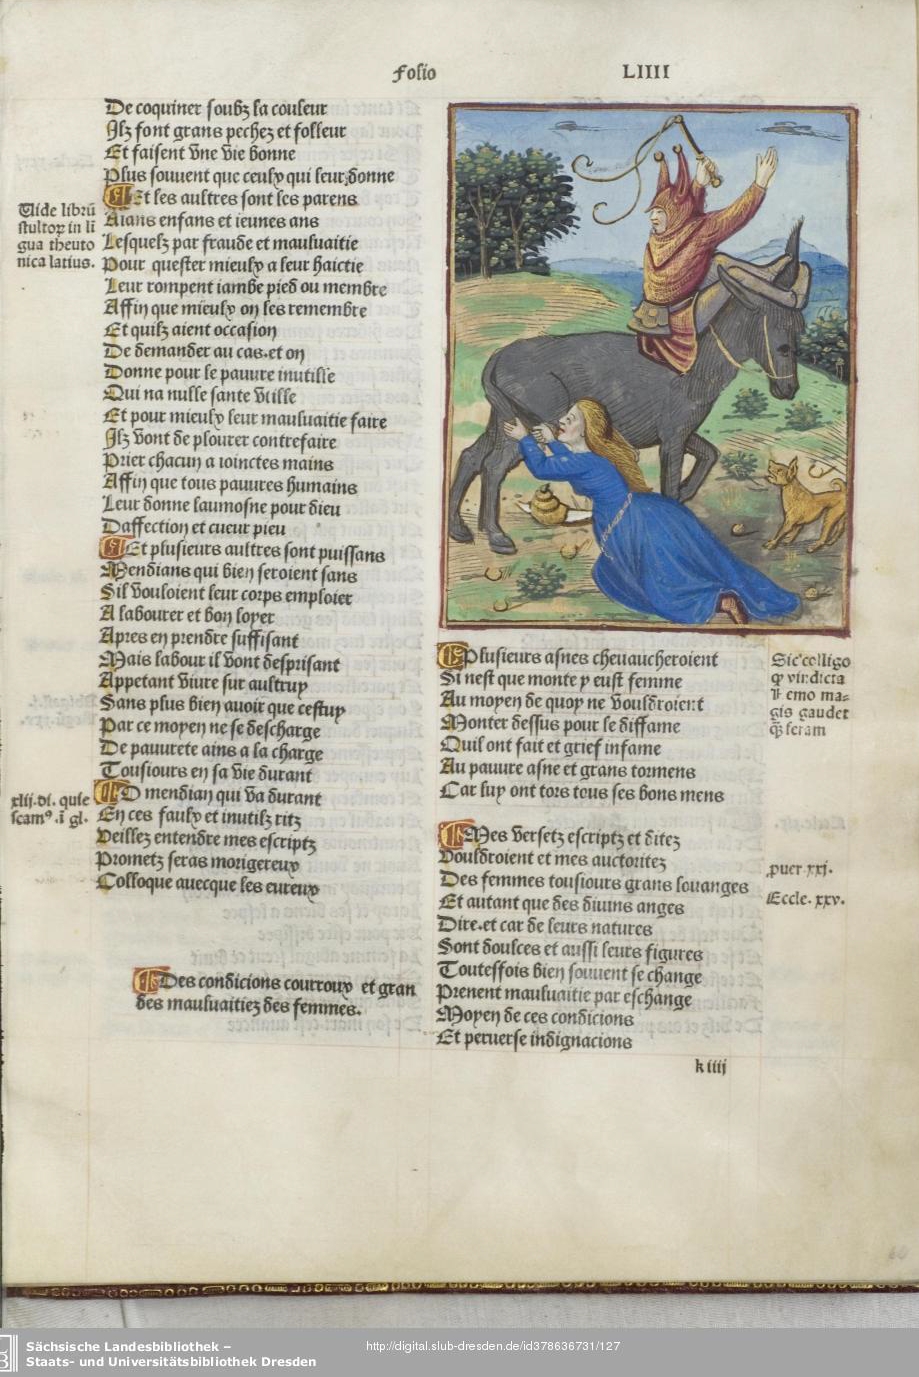 Folio LIIII
De coquiner soubz la couleur
Ilz font grans pechez et folleur
Et faisent vne vie bonne
Plus souuent que ceulx qui leur donne
Et les aultres sont les parens
Aians enfans et ieunes ans
Lesquelz par fraude et mauluaitie
Pour quester mieulx a leur haictie
Leur rompent iambe pied ou membre
Affin que mieulx on les remembre
Et quilz aient occasion
De demander au cas.et on
Donne pour le pauure inutille
Qui na nulle sante vtille
Et pour mieulx leur mauluaitie faire
Ilz vont de plourer contrefaire
Prier chacun a ioinctes mains
Affin que tous pauures humains
Leur donne laumosne pour dieu
Daffection et cueur pieu
Et plusieurs aultres sont puissans
Mendians qui bien seroient sans
Sil vouloient leur corps emploier
A labourer et bon loyer
Apres en prendre suffisant
Mais labour il vont desprisant
Appetant viure sur aultruy
Sans plus bien auoir que cestuy
Par ce moyen ne se descharge
De pauurete ains a la charge
Tousiours en sa vie durant
O mendian qui va durant
En ces faulx et inutilz ritz
Veillez entendre mes escriptz
Prometz seras morigereux
Colloque auecque les eureux
Des condicions courroux et gran
des mauluaitiez des femmes.
Vide librū
stultoꝝ in li
gua theuto
nica latius.
xlij.di. quie
scamꝰ. i gl.
Plusieurs asnes cheuaucheroient
Si nest que monte y eust femme
Au moyen de quoy ne vouldroient
Monter dessus pour le diffame
Quil ont fait et grief infame
Au pauure asne et grans tormens
Car luy ont tors tous ses bons mens
Mes versetz escriptz et ditez
Vouldroient et mes auctoritez
Des femmes tousiours grans louanges
Et autant que des diuins anges
Dire.et car de leurs natures
Sont doulces et aussi leurs figures
Touteffois bien souuent se change
Prenent mauluaitie par eschange
Moyen de ces condicions
Et peruerse indignacions
Sic colligo
q̄ vindicta
nemo ma=
gis gaudet
q̄ feram
puer.xxj.
Eccle.xxv.
k iiij
Sächsische Landesbibliothek –
Staats- und Universitätsbibliothek Dresden
http://digital.slub-dresden.de/id378636731/127